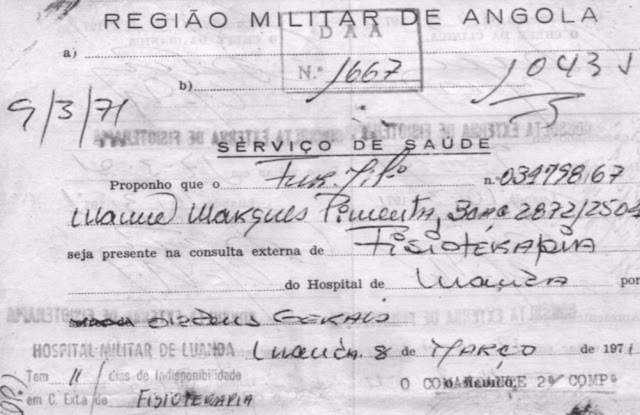 REGIÃO MILITAR DE ANGOLA
D A A
a)
N.º 1667
b)
1043
9/3/71
SERVIÇO DE SAÚDE
Proponho que o Fur. Milº n.º 03479867
Manuel Marques Pimenta, 2872/2504
seja presente na consulta externa de Fisioterapia
do Hospital de Luanda por
GERAIS
HOSPITAL MILITAR DE LUANDA Luanda 8 de Março de 1971
Tem 11 dias de indisponibilidade
O COMANDANTE 2ª COMPª
em C. Exta de FISIOTERAPIA